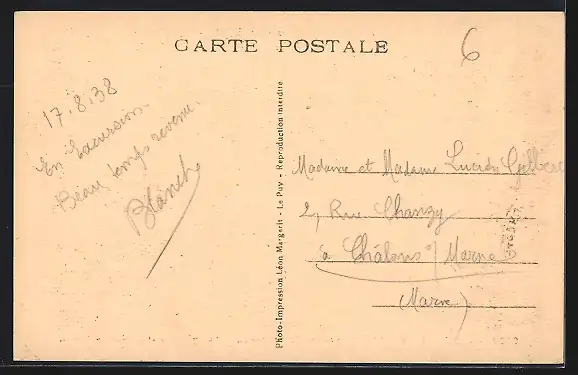 CARTE POSTALE
6
17.8.38
En Excursion.
Beau temps revenu.
Blanche
Photo-Impression Léon Margerit - Le Puy - Reproduction interdite
Madame et Madame Lucide Gilbert
2, Rue Chanzy
à Châlons s/ Marne
(Marne)